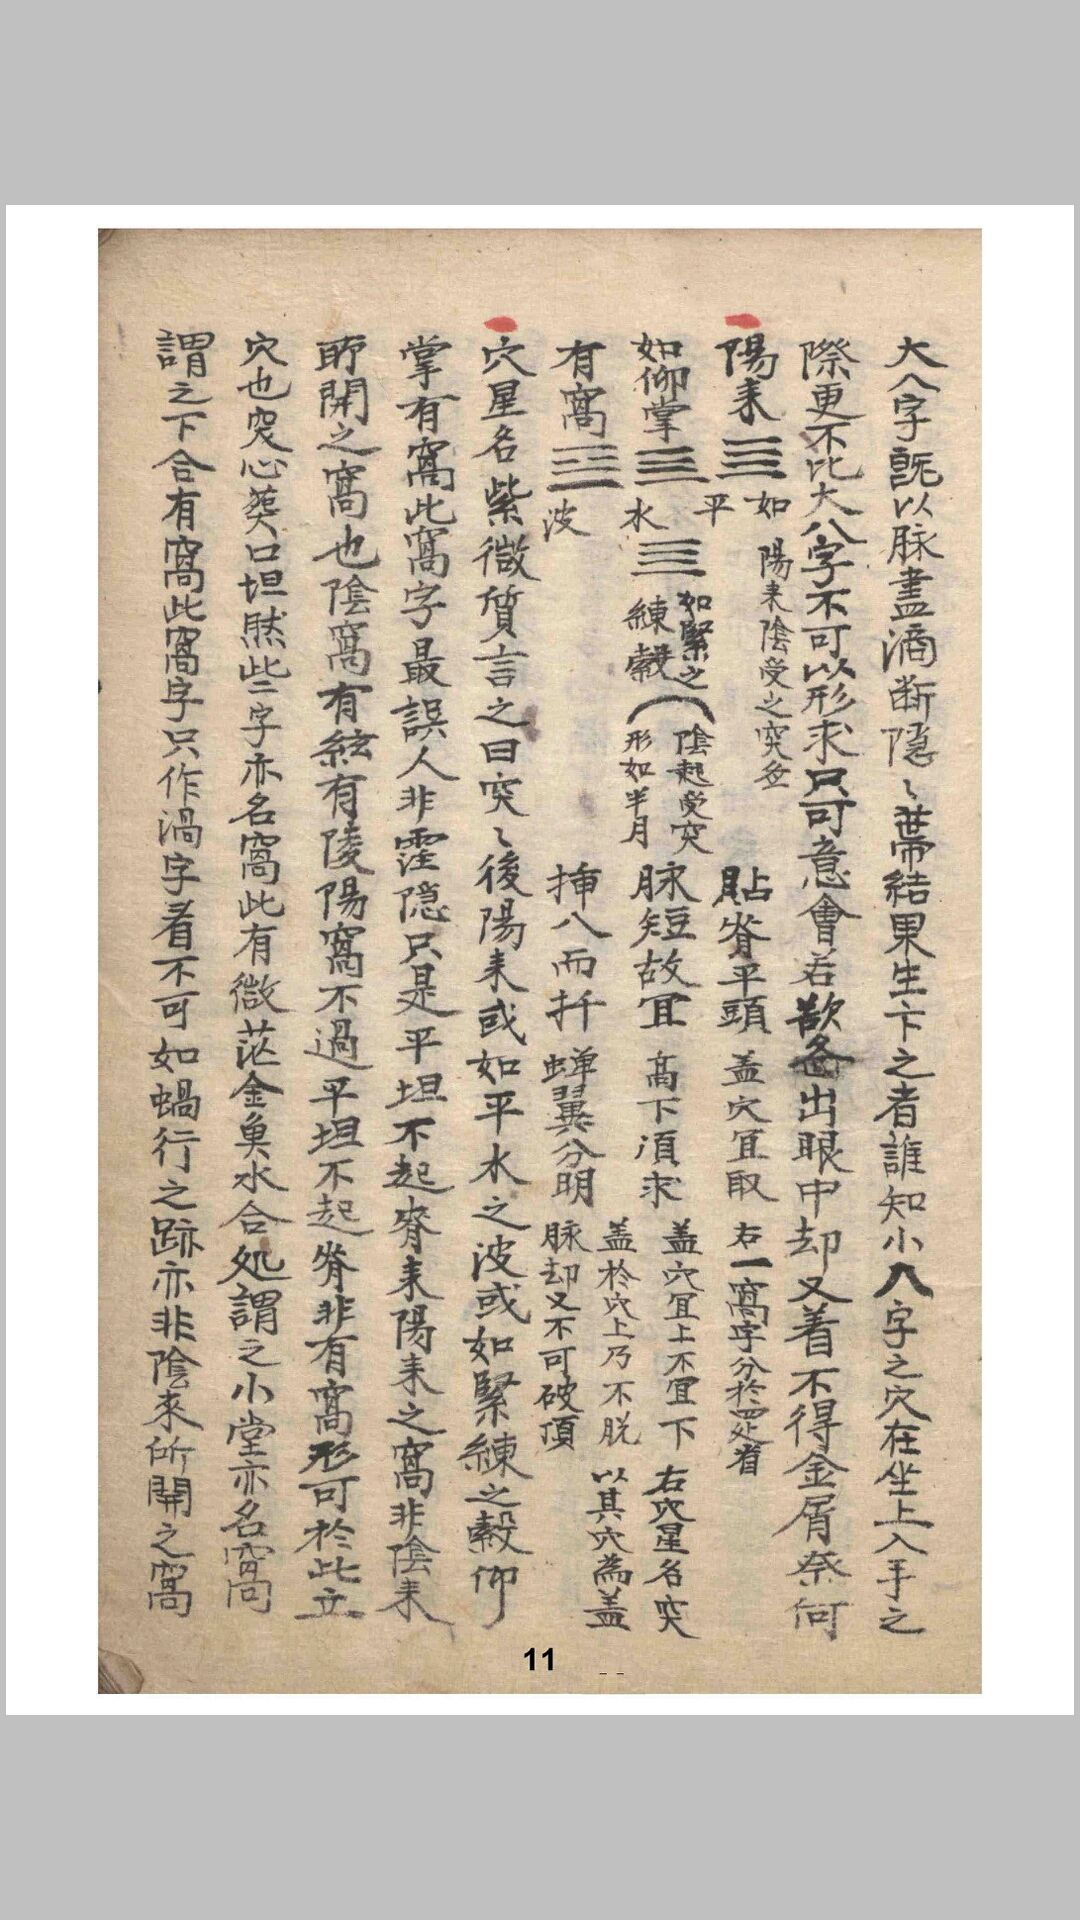 大八字既以脉盡滴断隐〻蒂结果生下之者誰知小八字之穴在坐上入手之
際更不比大八字不可以形求只可意會若欲出眼中却又着不得金屑奈何
陽来
如
平
陽来陰受之突
貼脊平頭
盖穴宜取
右一窩字分於四處者
如仰掌
水
如緊之
練縠
陰起受突
形如半月
脉短故宜
高下須求
盖穴宜上不宜下
盖於穴上乃不脱
右穴星名突
以其穴為盖
有窩
波
揷八而扦
蝉翼分明
脉却又不可破頂
穴星名紫微質言之曰突〻後陽来或如平水之波或如緊練之縠仰
掌有窩此窩字最誤人非隐只是平坦不起脊来陽来之窩非陰来
所開之窩也陰窩有絃有陵陽窩不過平坦不起脊非有窩形可於此立
穴也突心葬口坦然此二字亦名窩此有微茫金魚水合処謂之小堂亦名窩
謂之下合有窩此窩字只作渦字看不可如蝸行之跡亦非陰來所開之窩
11